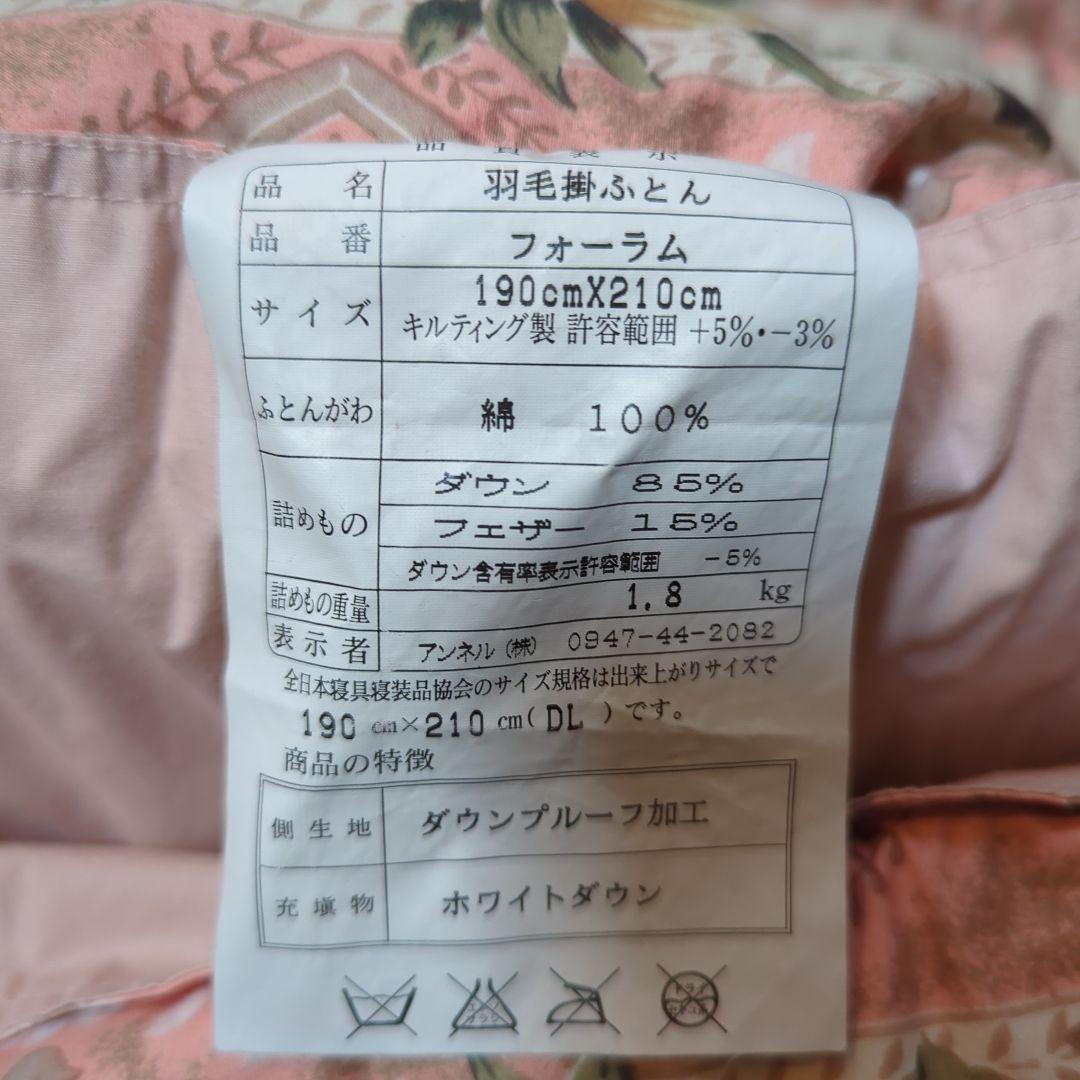 品質表示
品名 羽毛掛ふとん
品番 フォーラム
サイズ 190cmX210cm
キルティング製 許容範囲 +5%・-3%
ふとんがわ 綿 100%
詰めもの ダウン 85%
フェザー 15%
ダウン含有率表示許容範囲 -5%
詰めもの重量 1.8 kg
表示者 アンネル(株) 0947-44-2082
全日本寝具寝装品協会のサイズ規格は出来上がりサイズで
190cm×210cm(DL)です。
商品の特徴
側生地 ダウンプルーフ加工
充填物 ホワイトダウン
エンソサラシ ドライ セキユ系